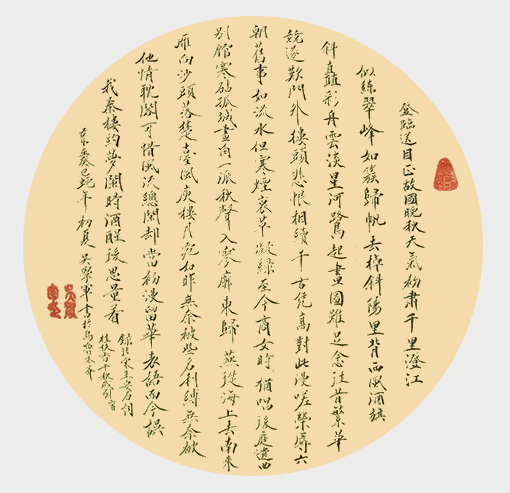 登臨送目正故國晚秋天氣初肅千里澄江
似練翠峰如簇歸帆去棹斜陽里背西風酒旗
斜矗彩舟雲淡星河鷺起畫圖難足念往昔繁華
競逐歎門外樓頭悲恨相續千古憑高對此漫嗟榮辱六
朝舊事如流水但寒煙衰草凝綠至今商女時時猶唱後庭遺曲
別館寒砧孤城畫角一派秋聲入寥廓東歸燕從海上去南來
雁向沙頭落楚臺風庾樓月宛如昨無奈被些名利縛無奈被
他情耽閣可惜風流總閒却當初漫留華表語而今誤
我秦樓約夢闌時酒醒後思量着
錄北宋王安石詞
桂枝香千秋歲引二首
癸巳蛇年初夏吴學軍書於烏魯木齊